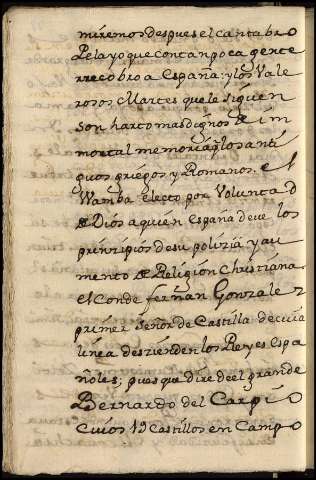 miremos despues el cantabro
Pelayo que con tan poca gente
rrecobro a España: y los Vale
rosos Martes que le siguen
son harto mas dignos de im
mortal memoria q̃ los anti
guos griegos y Romanos. el
Wamba electo por Voluntad
de Dios a quien España deve los
prinzipios de su polizia y au
mento de Religion Christiana
el Conde fernan Gonzalez
primer Señor de Castilla de cuia
linea deszienden los Reyes Espa
ñoles; pues que dire de el grande
Bernardo del Carpio
Cuios 19 Castillos en Campo